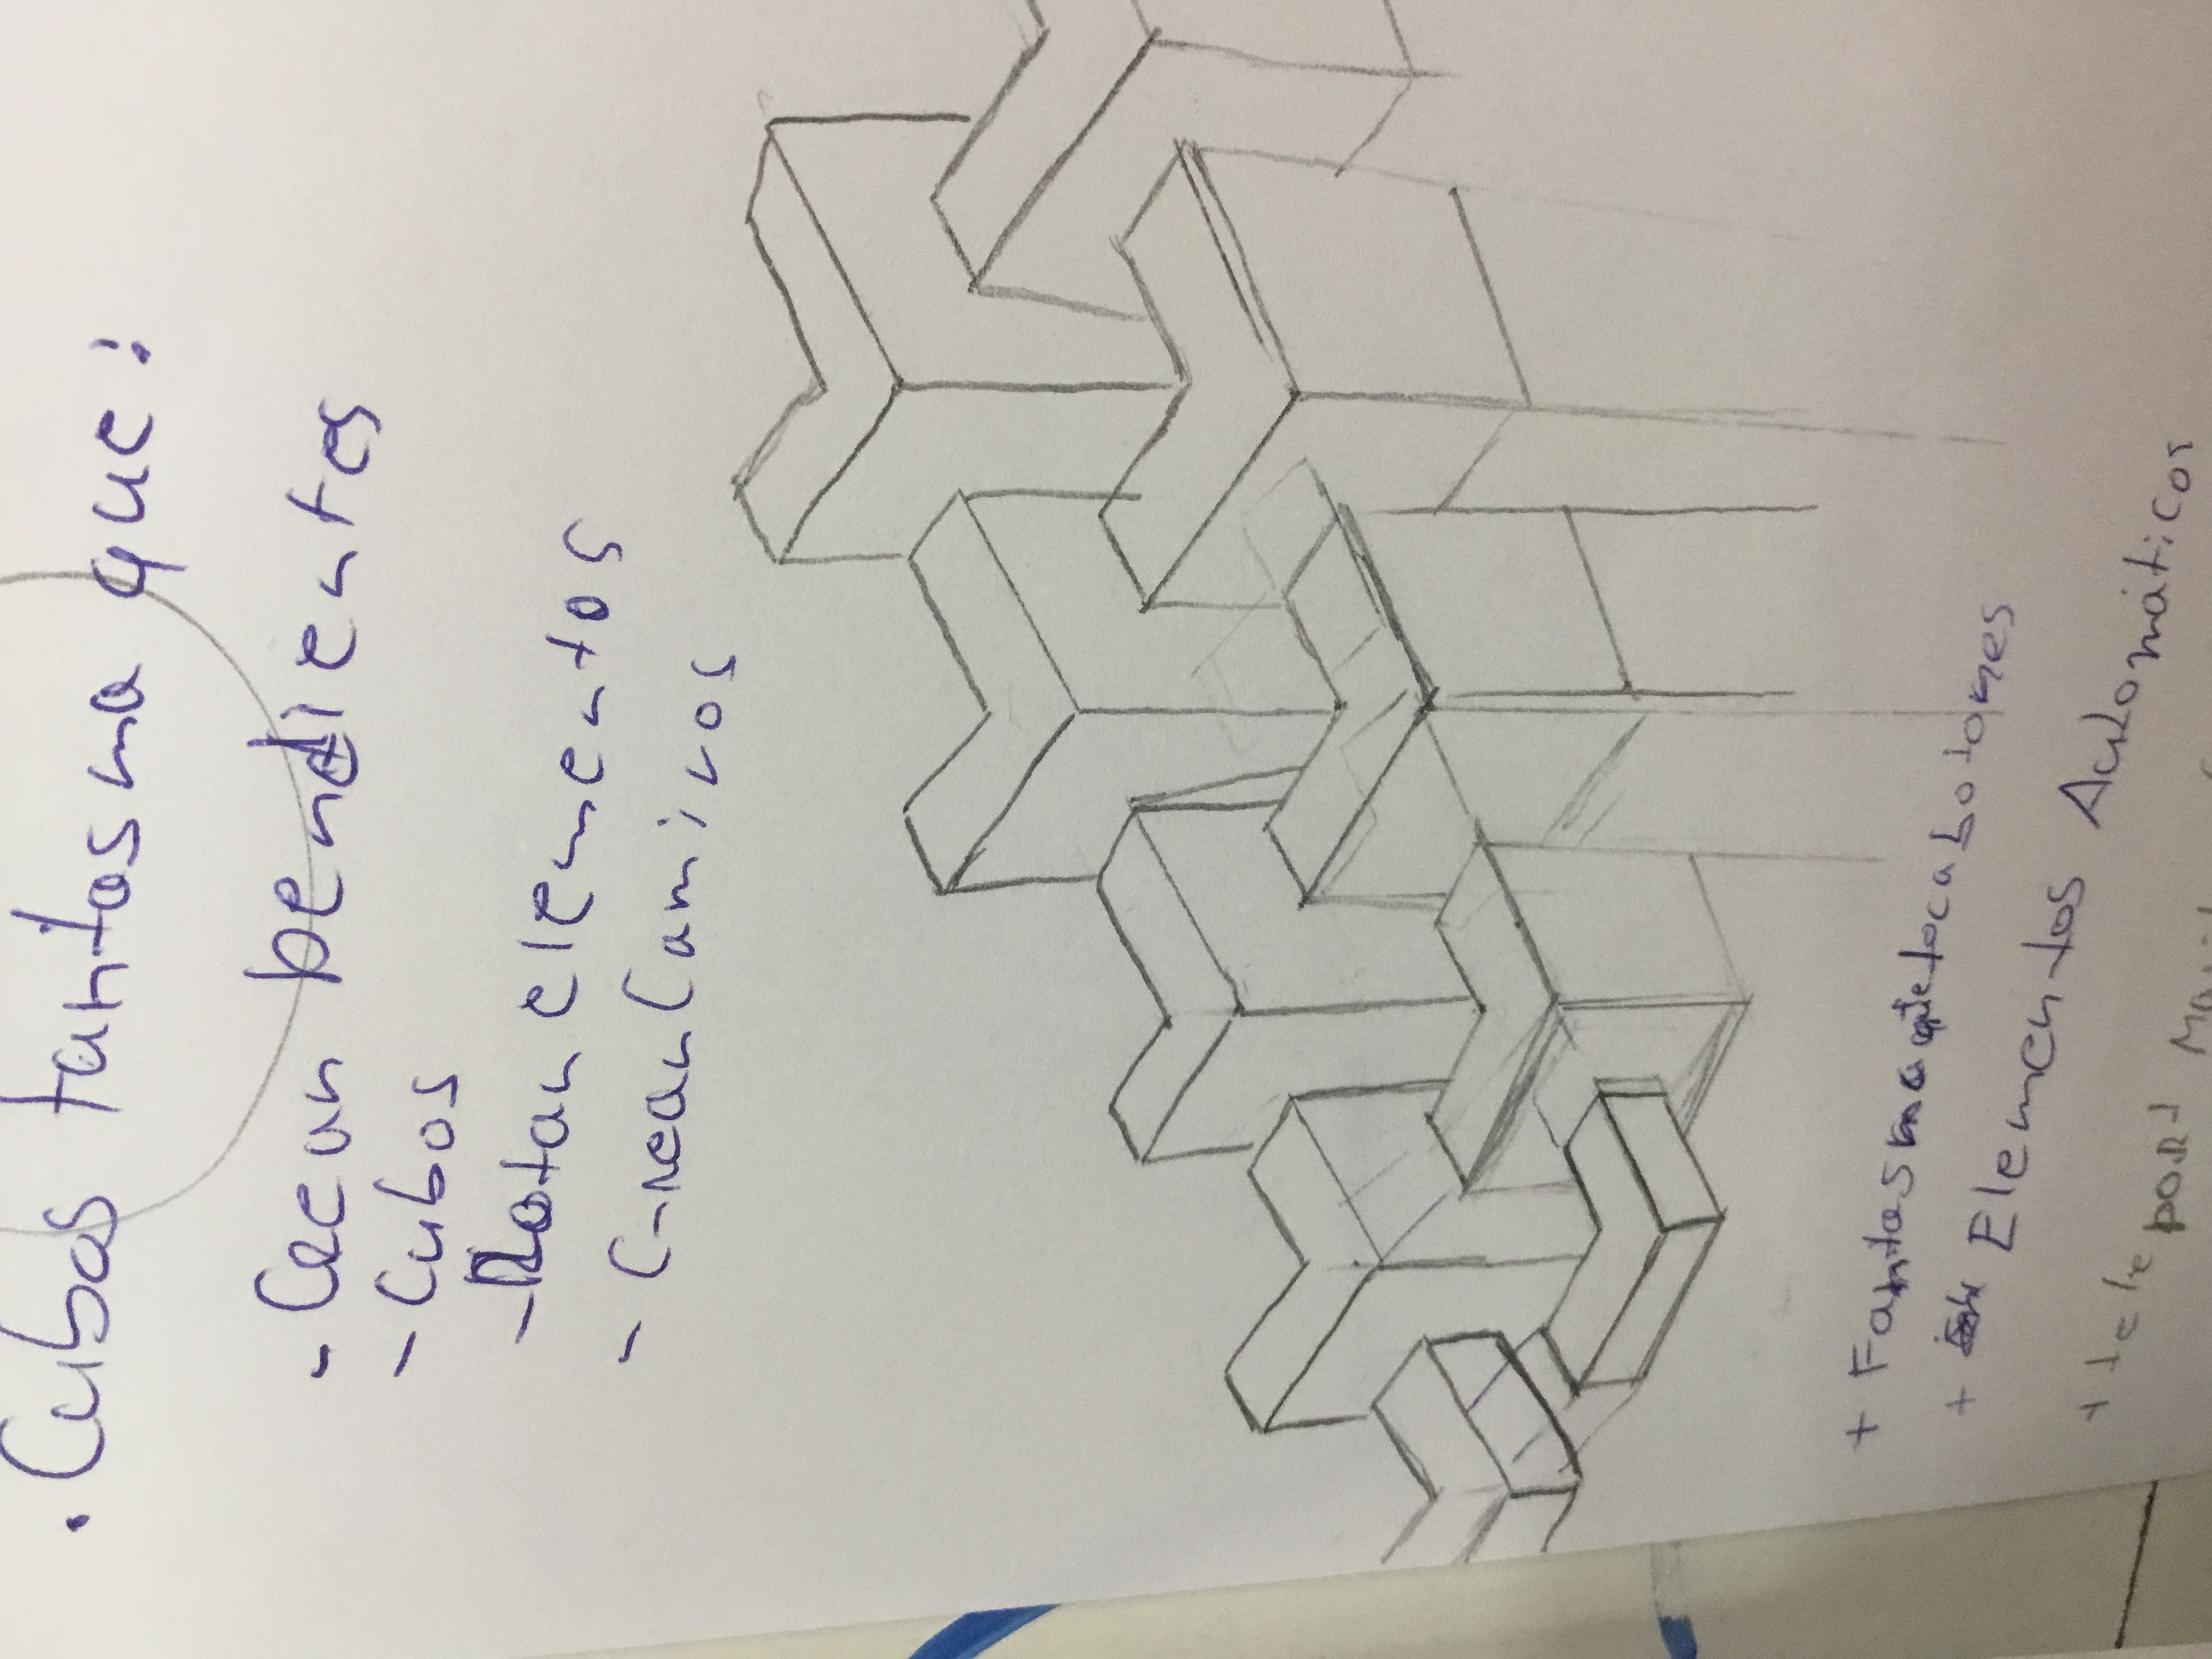 . Cubos fantasma que:
- Crean pendientes
- Cubos
- Rotan elementos
- Crean Caminos
+ Fantasma que toca botones
+ Elementos Automáticos
+ teleport